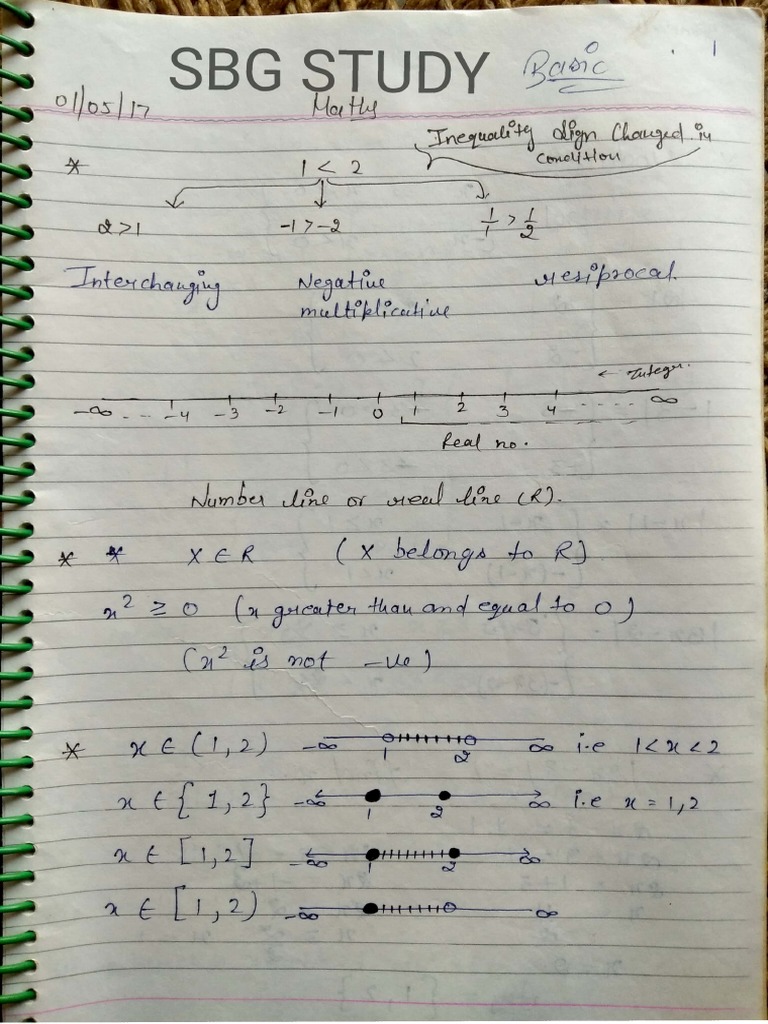 SBG STUDY Basic 1
01/05/17 Maths
Inequality sign Changed in
condition
* 1 < 2
2 > 1 -1 > -2 1/1 > 1/2
Interchanging Negative resiprocal.
multiplicative
← Integr.
-∞ .... -4 -3 -2 -1 0 1 2 3 4 ..... ∞
Real no.
Number line or real line (R).
* * X ∈ R (X belongs to R)
x² ≥ 0 (x greater than and equal to 0)
(x² is not -ve)
* x ∈ (1, 2) -∞ 1 2 ∞ i.e 1 < x < 2
x ∈ { 1, 2} -∞ 1 2 ∞ i.e x = 1, 2
x ∈ [1, 2] -∞ 1 2 ∞
x ∈ [1, 2) -∞ ∞